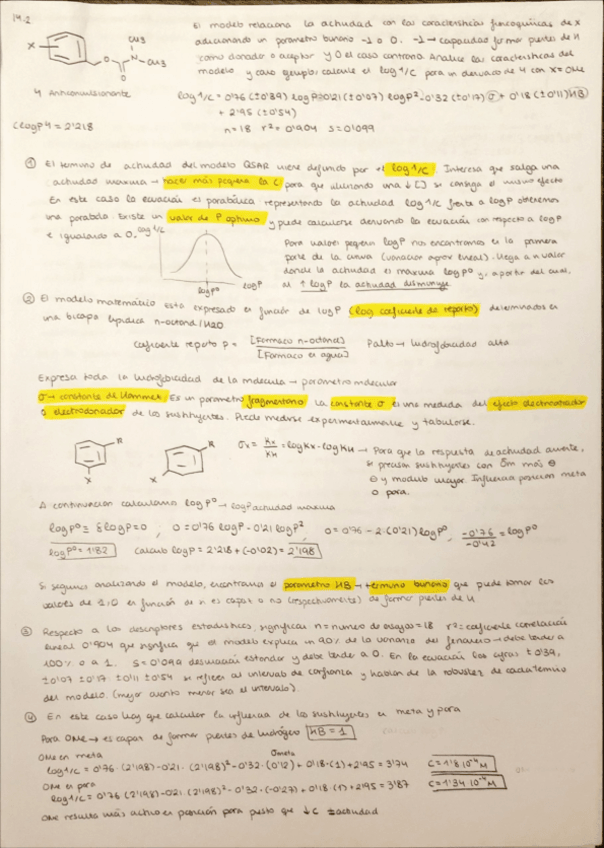 14.2
El modelo relaciona la actividad con las características fisicoquímicas de X
adicionando un parámetro binario -1 o 0. -1 → capacidad formar puentes de H
como donador o aceptor y 0 el caso contrario. Analice las características del
modelo y como ejemplo calcule el log 1/c para un derivado de 4 con X=OMe
X
O
O
N
CH3
CH3
4 Anticonvulsionante
log 1/c = 0'76 (±0'39) log P - 0'21 (±0'07) log P² - 0'32 (±0'17) σ + 0'18 (±0'11) HB
+ 2'95 (±0'54)
Clog P4 = 2'218
n = 18 r² = 0'904 s = 0'099
① El termino de actividad del modelo QSAR viene definido por el log 1/c. Interesa que salga una
actividad maxima → hacer más pequeña la C para que utilizando una ↓[ ] se consiga el mismo efecto
En este caso la ecuación es parabólica, representando la actividad log 1/c frente a log P obtenemos
una parabola. Existe un valor de P optimo y puede calcularse derivando la ecuación con respecto a log P
e igualando a 0.
log 1/c
log P⁰
log P
Para valores pequeños log P nos encontramos en la primera
parte de la curva (variación aprox lineal). Llega a un valor
donde la actividad es maxima log P⁰ y, a partir del cual,
al ↑ log P la actividad disminuye
② El modelo matemático esta expresado en función de log P (log coeficiente de reparto) determinados en
una bicapa lipidica n-octanol/H2O
Coeficiente reparto P = [Farmaco n-octanol] / [Farmaco en agua] P alto → hidrofobicidad alta
Expresa toda la hidrofobicidad de la molécula → parametro molecular
σ → constante de Hammet. Es un parametro fragmentario. La constante σ es una medida del efecto electroatractor
o electrodonador de los sustituyentes. Puede medirse experimentalmente y tabularse.
R
X
R
X
σx = Kx/KH = log Kx - log KH → Para que la respuesta de actividad aumente,
se precisan sustituyentes con σm más ⊖
⊖ y modulo mayor. Influencia posicion meta
o para.
A continuación calculamos log P⁰ → log P actividad maxima
log P⁰ = δ log P = 0 , 0 = 0'76 log P - 0'21 log P² , 0 = 0'76 - 2·(0'21) log P⁰ , -0'76/-0'42 = log P⁰
log P⁰ = 1'82 Calculo log P = 2'218 + (-0'02) = 2'198
Si seguimos analizando el modelo, encontramos el parametro HB → termino binario que puede tomar los
valores de 1, 0 en función de si es capaz o no (respectivamente) de formar puentes de H
③ Respecto a los descriptores estadísticos, significan n = numero de ensayos = 18 r² = coeficiente correlación
lineal 0'904 que significa que el modelo explica un 90% de la varianza del fenomeno → debe tender a
100% o a 1. s = 0'099 desviación estandar y debe tender a 0. En la ecuación las cifras ±0'39,
±0'07 ±0'17 ±0'11 ±0'54 se refieren al intervalo de confianza y hablan de la robustez de cada termino
del modelo. (mejor cuanto menor sea el intervalo)
④ En este caso hay que calcular la influencia de los sustituyentes en meta y para
Para OMe → es capaz de formar puentes de hidrógeno HB = 1
OMe en meta
σmeta
log 1/c = 0'76 · (2'198) - 0'21 · (2'198)² - 0'32 · (0'12) + 0'18 · (1) + 2'95 = 3'74 C = 1'8·10⁻⁴ M
OMe en para
log 1/c = 0'76 (2'198) - 0'21 · (2'198)² - 0'32 · (-0'27) + 0'18 · (1) + 2'95 = 3'87 C = 1'34·10⁻⁴ M
OMe resulta más activo en posición para puesto que ↓C = ↑actividad